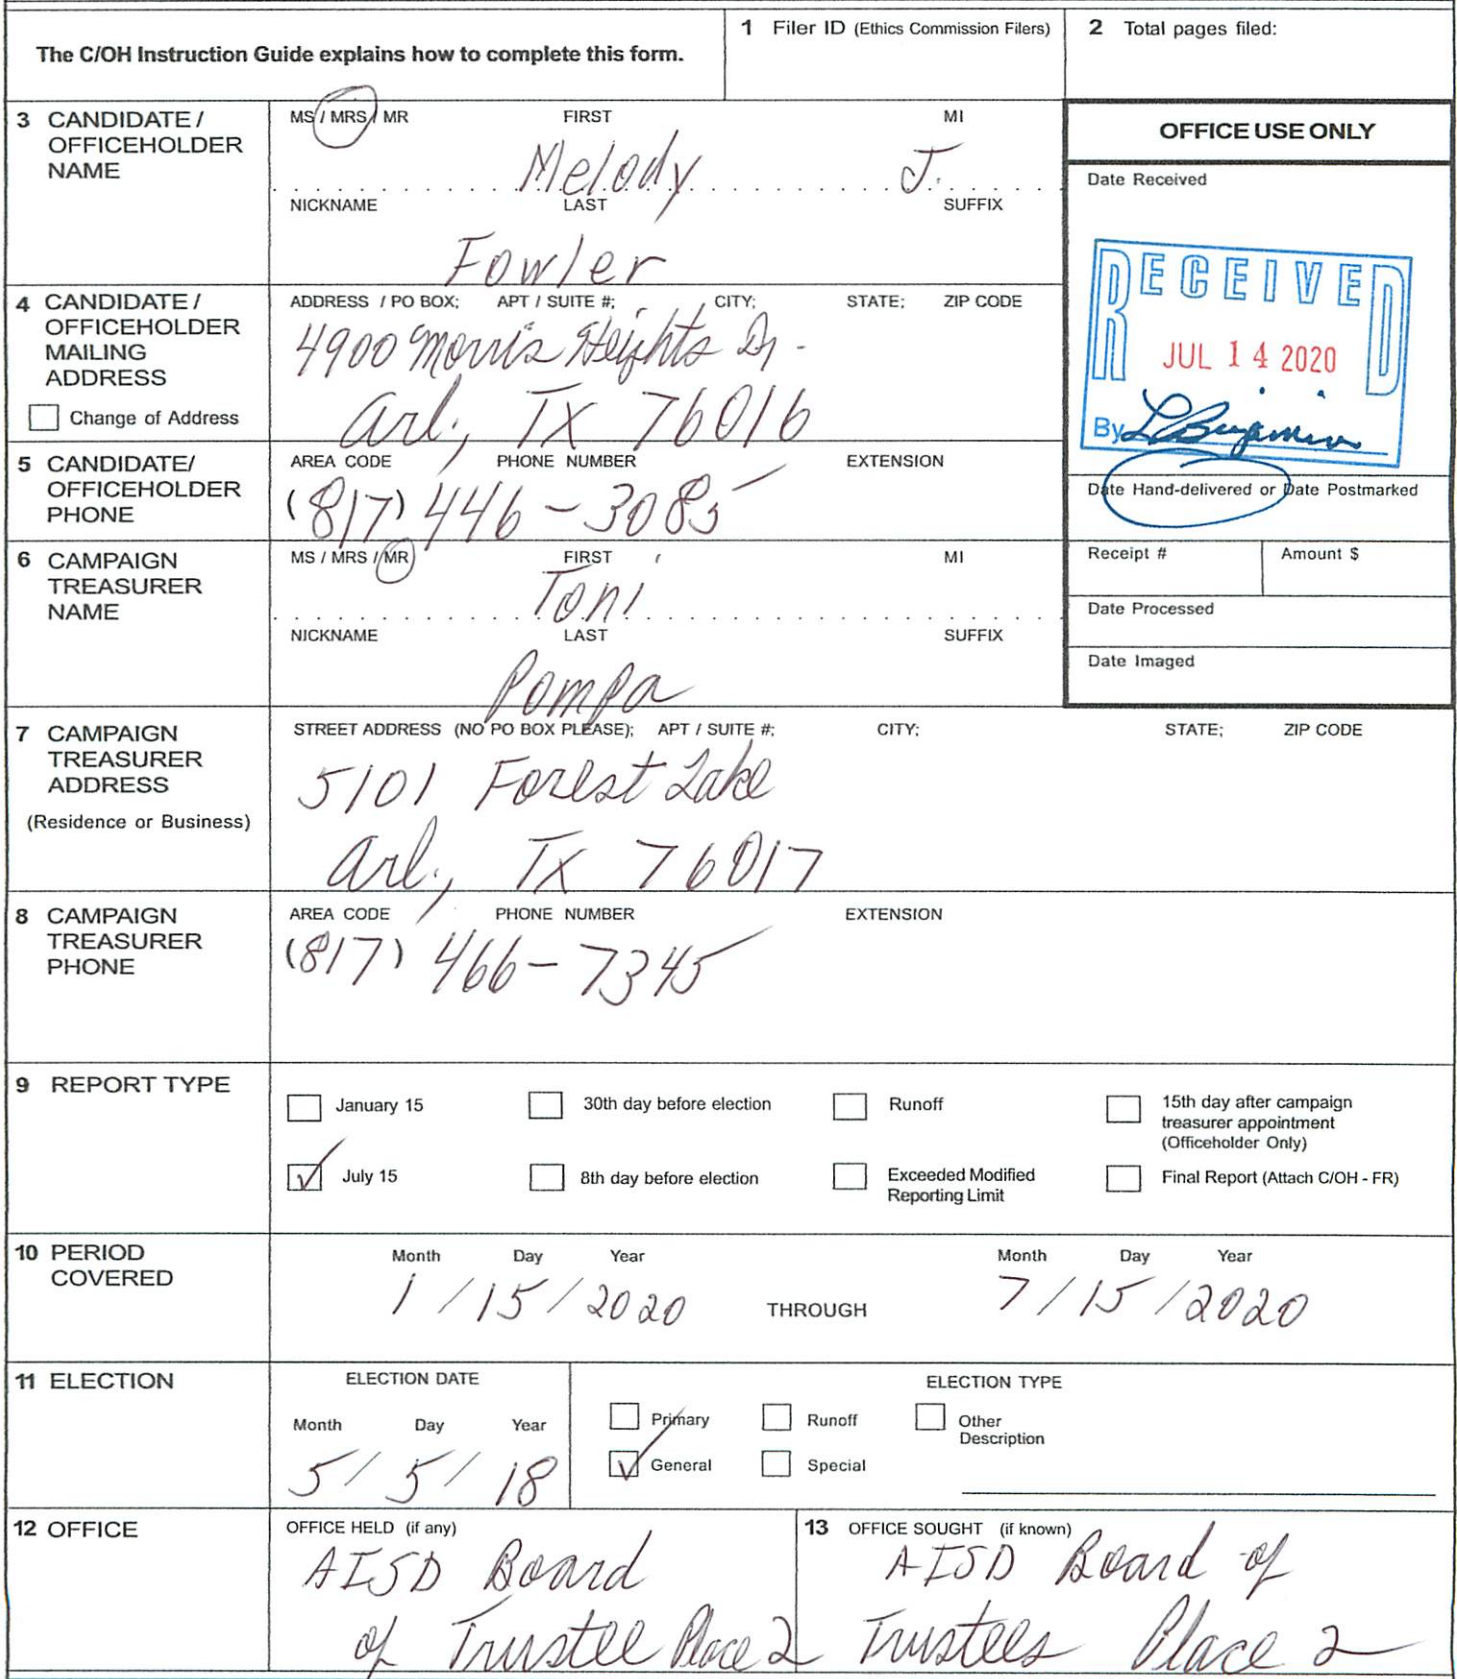 The C/OH Instruction Guide explains how to complete this form.
1 Filer ID (Ethics Commission Filers)
2 Total pages filed:
3 CANDIDATE / OFFICEHOLDER NAME
MS / MRS / MR FIRST MI
Melody J.
NICKNAME LAST SUFFIX
Fowler
OFFICE USE ONLY
Date Received
RECEIVED
JUL 14 2020
By L Benjamin
Date Hand-delivered or Date Postmarked
Receipt # Amount $
Date Processed
Date Imaged
4 CANDIDATE / OFFICEHOLDER MAILING ADDRESS
Change of Address
ADDRESS / PO BOX; APT / SUITE #; CITY; STATE; ZIP CODE
4900 Morris Heights Dr.
Arl., TX 76016
5 CANDIDATE/ OFFICEHOLDER PHONE
AREA CODE PHONE NUMBER EXTENSION
(817) 446-3085
6 CAMPAIGN TREASURER NAME
MS / MRS / MR FIRST MI
Toni
NICKNAME LAST SUFFIX
Pompa
7 CAMPAIGN TREASURER ADDRESS
(Residence or Business)
STREET ADDRESS (NO PO BOX PLEASE); APT / SUITE #; CITY; STATE; ZIP CODE
5101 Forest Lake
Arl., TX 76017
8 CAMPAIGN TREASURER PHONE
AREA CODE PHONE NUMBER EXTENSION
(817) 466-7345
9 REPORT TYPE
January 15 30th day before election Runoff 15th day after campaign treasurer appointment (Officeholder Only)
July 15 8th day before election Exceeded Modified Reporting Limit Final Report (Attach C/OH - FR)
10 PERIOD COVERED
Month Day Year Month Day Year
1 / 15 / 2020 THROUGH 7 / 15 / 2020
11 ELECTION
ELECTION DATE
Month Day Year
5 / 5 / 18
ELECTION TYPE
Primary Runoff Other Description
General Special
12 OFFICE
OFFICE HELD (if any)
AISD Board
of Trustee Place 2
13 OFFICE SOUGHT (if known)
AISD Board of
Trustees Place 2